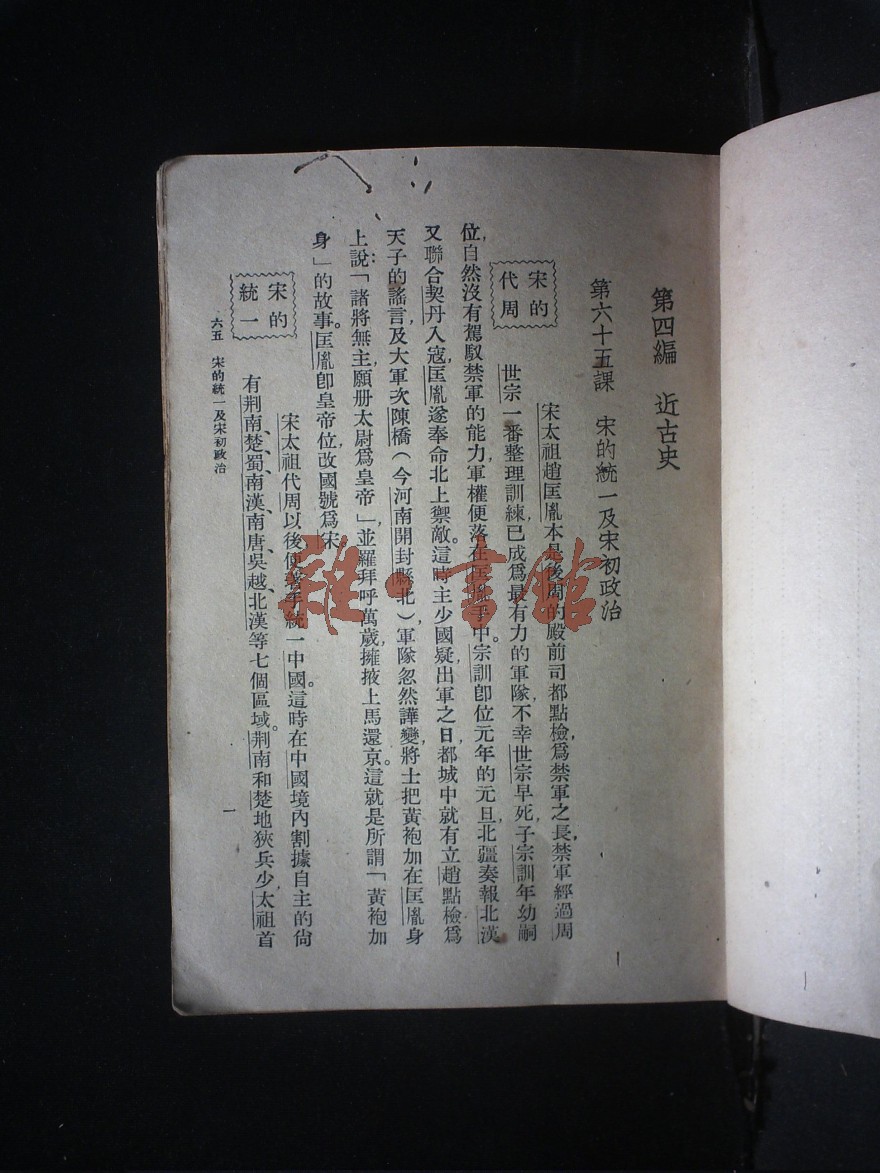 第四編　近古史
第六十五課　宋的統一及宋初政治
宋的
代周
宋太祖趙匡胤本是後周的殿前司都點檢，爲禁軍之長，禁軍經過周
世宗一番整理訓練，已成爲最有力的軍隊，不幸世宗早死，子宗訓年幼嗣
位，自然沒有駕馭禁軍的能力，軍權便落在匡胤手中。宗訓卽位元年的元旦，北疆奏報北漢
又聯合契丹入寇，匡胤遂奉命北上禦敵。這時主少國疑，出軍之日，都城中就有立趙點檢爲
天子的謠言，及大軍次陳橋（今河南開封縣北），軍隊忽然譁變，將士把黃袍加在匡胤身
上說：「諸將無主，願册太尉爲皇帝」，並羅拜呼萬歲，擁掖上馬還京。這就是所謂「黃袍加
身」的故事。匡胤卽皇帝位，改國號爲宋
宋的
統一
宋太祖代周以後，便着手統一中國。這時在中國境內割據自主的，尙
有荆南、楚、蜀、南漢、南唐、吳越、北漢等七個區域。荆南和楚地狹兵少，太祖首
六五　宋的統一及宋初政治
一
雜·書館